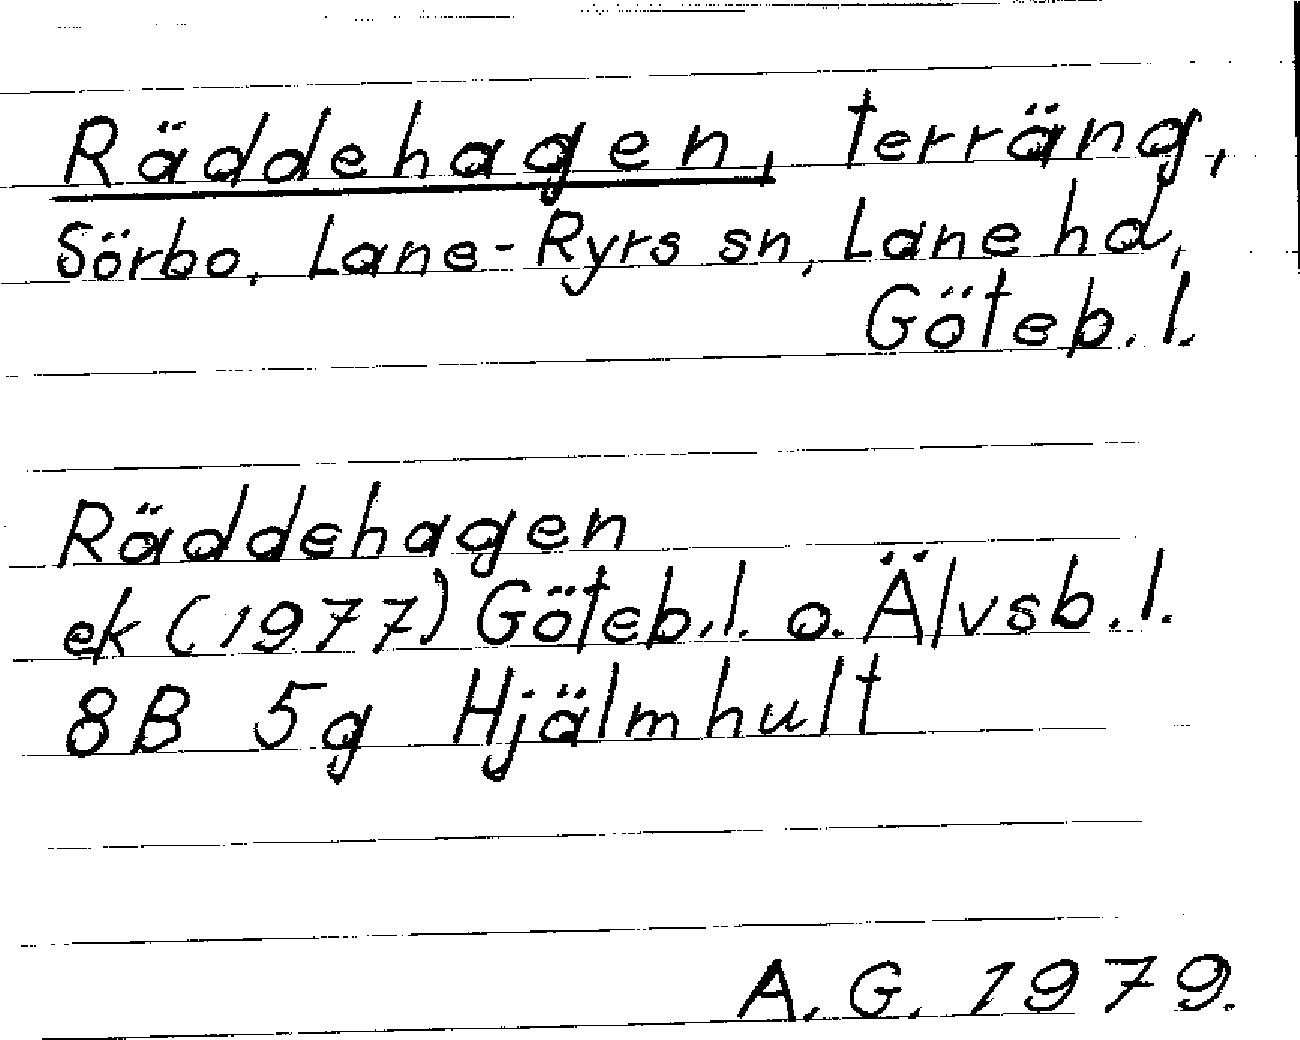 Räddehagen, terräng,
Sörbo, Lane-Ryrs sn, Lane hd,
Göteb. l.
Räddehagen
ek (1977) Göteb. l. o. Älvsb. l.
8B 5g Hjälmhult
A. G. 1979.